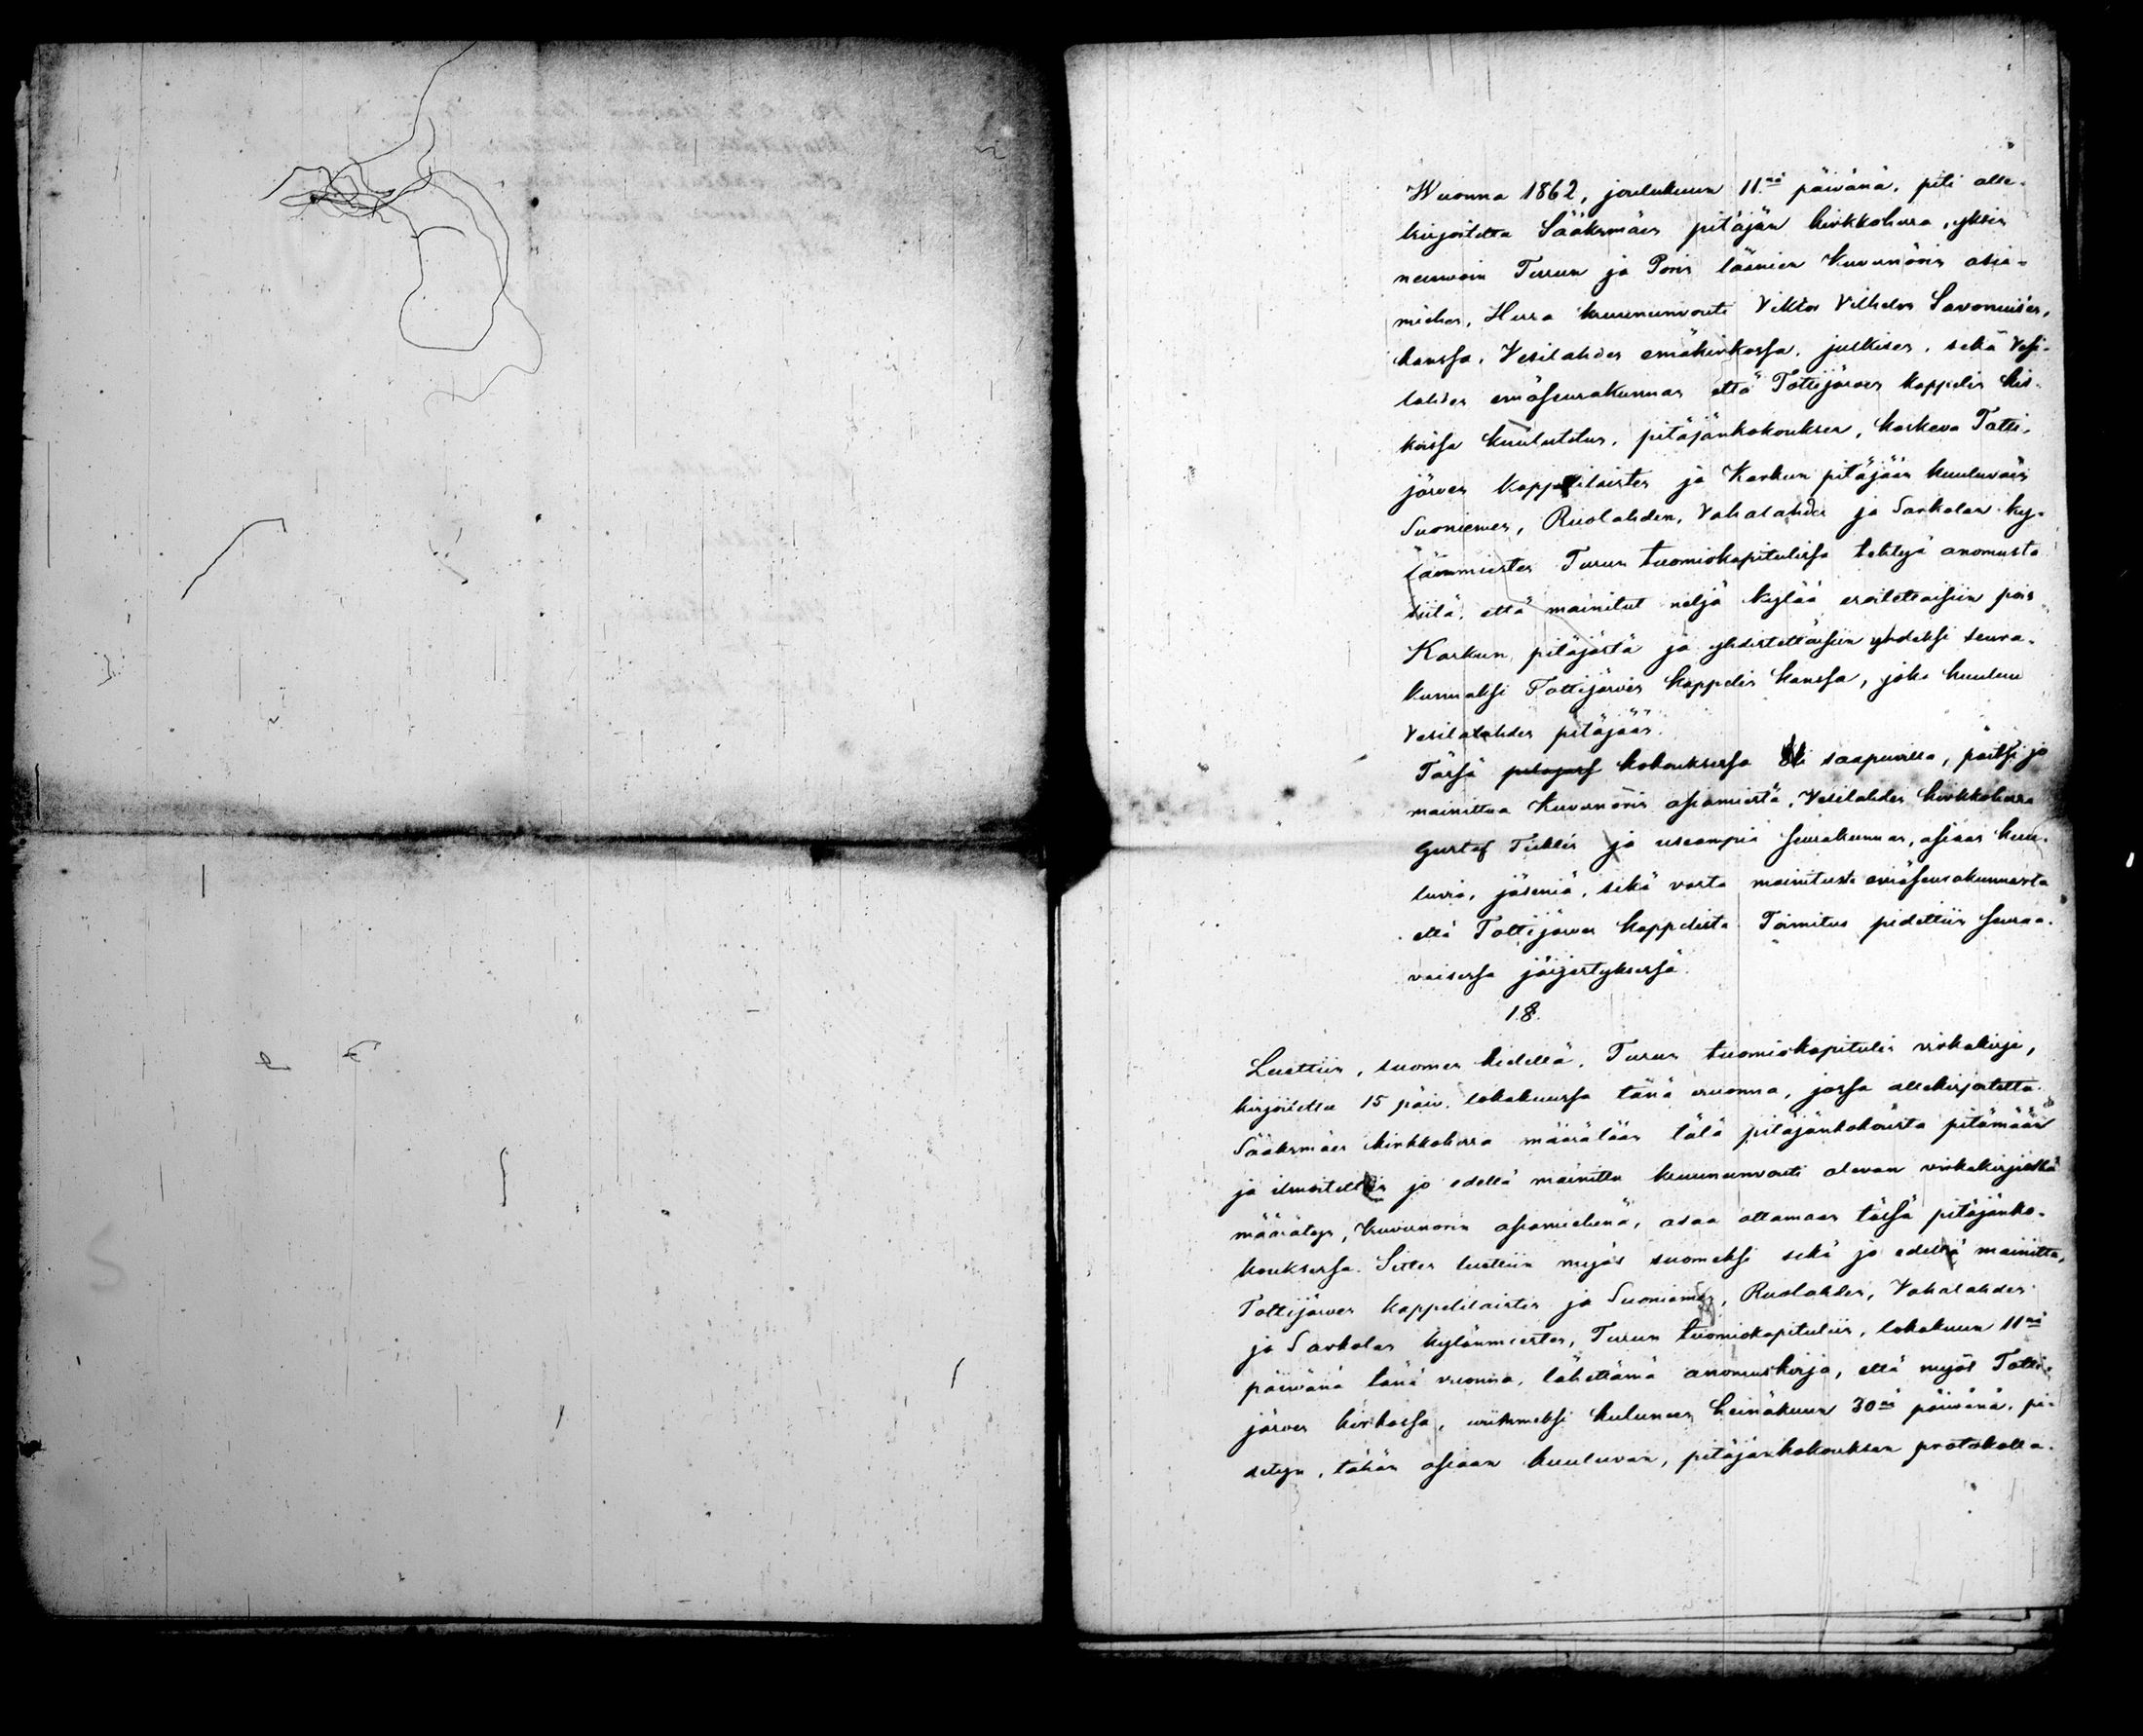 Wuonna 1862, joulukuun 11nä päivänä, piti alle-
kirjoitettu Sääksmäen pitäjän kirkkoherra, yksin
neuwoin Turun ja Porin läänien Kuvernörin asia-
miehen, Herra kruununvouti Viktor Vilhelm Savoniuisen,
kanssa, Vesilahden emäkirkossa, julkisen, sekä Vesi-
lahden emäseurakunnan että Tottijärven kappelin kir-
koissa kuulutetun, pitäjänkokouksen, koskeva Totti-
järven kappelilaisten ja Karkun pitäjään kuuluvain
Suoniemen, Ruolahden, Vahalahden ja Sarkolan ky-
länmiesten Turun tuomiokapitulissa tehtyä anomusta
siitä, että mainitut neljä kylää eroitettaisiin pois
Karkun pitäjästä ja yhdistettäisiin yhdeksi seura-
kunnaksi Tottijärven kappelin kanssa, joka kuuluu
Vesilahden pitäjään.
Tässä kokouksessa oli saapuvilla, paitsi jo
mainittua Kuvernörin asiamiestä, Vesilahden kirkkoherra
Gustaf Ticklén ja useampia seurakunnan, asiaan kuu-
luvia, jäseniä, sekä vasta mainitusta emäseurakunnasta
että Tottijärven kappelista. Toimitus pidettiin seuraa-
vaisessa jäijestyksessä.
1.§.
Luettiin, suomen kielellä, Turun tuomiokapitulin virkakirja,
kirjoitettu 15 päiv. lokakuussa tänä vuonna, jossa allekirjoitettu
Sääksmäen kirkkoherra määrätään tätä pitäjänkokousta pitämään
ja ilmoitettiin jo edellä mainittu kruununvouti olevan virkakirjalla
määrätty, Kuvernörin asiamiehenä, osaa ottamaan tässä pitäjänko-
kouksessa. Sitten luettiin myös suomeksi sekä jo edellä mainittu,
Tottijärven kappelilaisten ja Suoniemen, Ruolahden, Vahalahden
ja Sarkolan kylänmiesten, Turun tuomiokapituliin, lokakuun 11nä
päivänä tänä vuonna, lähettämä anomuskirja, että myös Totti-
järven kirkossa, viimeksi kuluneen heinäkuun 30nä päivänä, pi-
detyn, tähän asiaan kuuluvan, pitäjänkokouksen protokolla.